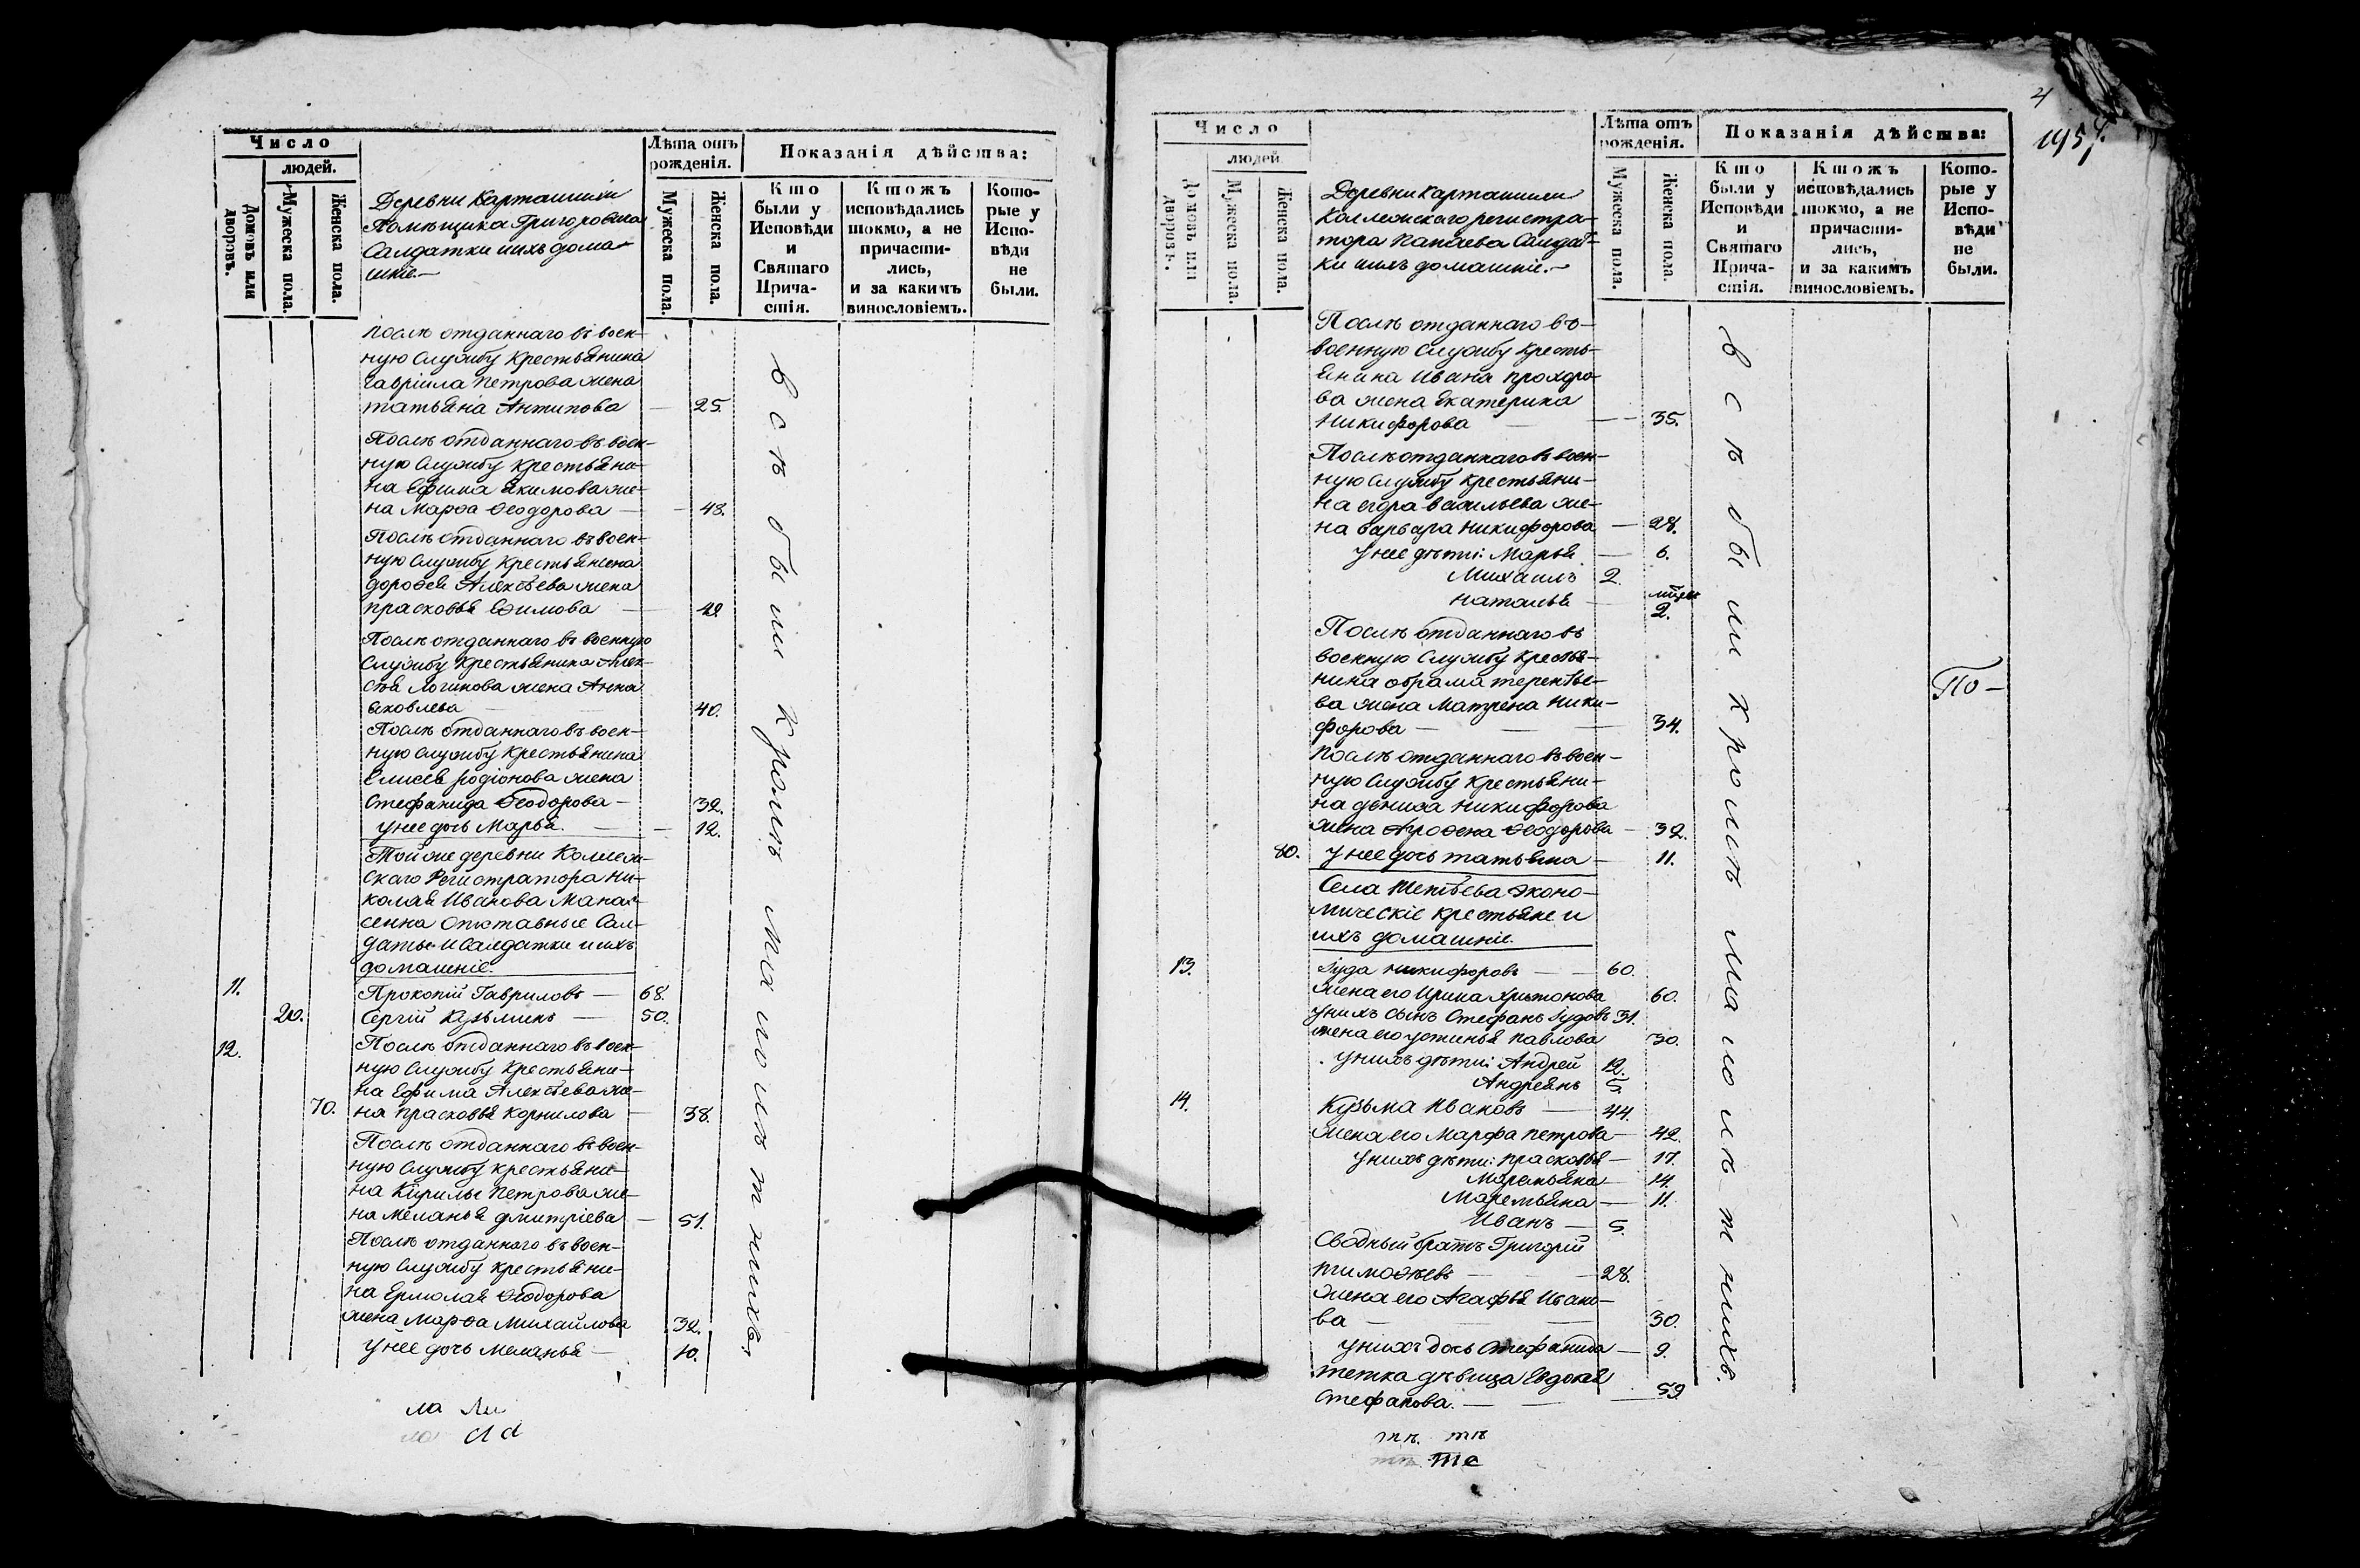 Число
людей.
Домовъ или дворовъ.
Мужеска пола.
Женска пола.
Деревни Карташихи
Помѣщика Григоровича
Салдатки ихъ дома-
шніе.—
Лѣта отъ рожденія.
Мужеска пола.
Женска пола.
Показанія дѣйства:
Кто были у Исповѣди и Святаго Прича- стія.
Ктожъ исповѣдались токмо, а не причасти- лись, и за какимъ винословіемъ.
Кото- рые у Испо- вѣди не были.
послѣ отданнаго въ воен-
ную службу Крестьянина
Гавріила Петрова жена
татьяна Антипова — 25.
Послѣ отданнаго въ воен-
ную службу крестьяни-
на Ефима Якимова же-
на Марѳа Ѳеодорова — 48.
Послѣ отданнаго въ воен-
ную службу Крестьянина
дороѳея Алексѣева жена
прасковья Ефимова — 42.
Послѣ отданнаго въ военную
службу Крестьянина Алек-
сѣя Логинова жена Анна
яковлева 40.
Послѣ отданнаго въ воен-
ную службу Крестьянина
Елисея родіонова жена
Стефанида Ѳеодорова — 32.
у нее дочь Марья. — 12.
Той же деревни Коллеж-
скаго Регистратора Ни-
колая Иванова
отставные Сал-
даты и Салдатки и ихъ
домашніе.
11. Прокопій Гавриловъ — 68.
20. Сергій Кузьминъ — 50.
12. Послѣ отданнаго въ воен-
ную службу Крестьяни-
на Ефима Алексѣева же-
70. на прасковья Корнилова — 38.
Послѣ отданнаго въ воен-
ную службу крестьяни-
на Кирилы Петрова же-
на Меланья дмитріева — 51.
Послѣ отданнаго въ воен-
ную службу крестьяни-
на Ермолая Ѳеодорова
жена Марѳа Михайлова 32.
у нее дочь Меланья — 10.
всѣ были кромѣ малолѣтнихъ.
ла ли
ла
4
195
Число
людей.
Домовъ или дворовъ.
Мужеска пола.
Женска пола.
Деревни Карташихи
Коллежскаго регистра-
тора Салдат-
ки ихъ домашніе.—
Лѣта отъ рожденія.
Мужеска пола.
Женска пола.
Показанія дѣйства:
Кто были у Исповѣди и Святаго Прича- стія.
Ктожъ исповѣдались токмо, а не причасти- лись, и за какимъ винословіемъ.
Кото- рые у Испо- вѣди не были.
Послѣ отданнаго въ-
военную службу кресть-
янина Ивана прохоро-
ва жена Екатерина
Никифорова — 35.
Послѣ отданнаго въ воен-
ную службу Крестьяни-
на егора васильева же-
на варвара Никифорова — 28.
у нее дѣти: Марья — 6.
Михаилъ 2.
наталья — 2.
Послѣ отданнаго въ
военную службу Крестья-
нина абрама терентье-
ва жена Матрена Ники-
форова — 34.
послѣ отданнаго въ воен-
ную службу Крестьяни-
на дениса Никифорова
жена Ѳеодорова — 32.
80. у нее дочь татьяна — 11.
Села эконо-
мическіе крестьяне и
ихъ домашніе.
13. Іуда Никифоровъ — 60.
жена его Ирина 60.
у нихъ сынъ Стефанъ Іудовъ 31.
жена его устинья павлова 30.
у нихъ дѣти: Андрей 12.
Андреянъ 5.
14. Кузьма Ивановъ — 44.
жена его Марфа петрова — 42.
у нихъ дѣти: прасковья — 17.
Маремьяна 14.
Маремьяна — 11.
Иванъ — 5.
Сводный братъ Григорій
тимоѳеевъ — 28.
жена его Агафья Ивано-
ва — 30.
у нихъ дочь Стефанида — 9.
тетка дѣвица Евдокея
Стефанова. — 59
всѣ были кромѣ малолѣтнихъ.
По-
тѣ. тѣ
те